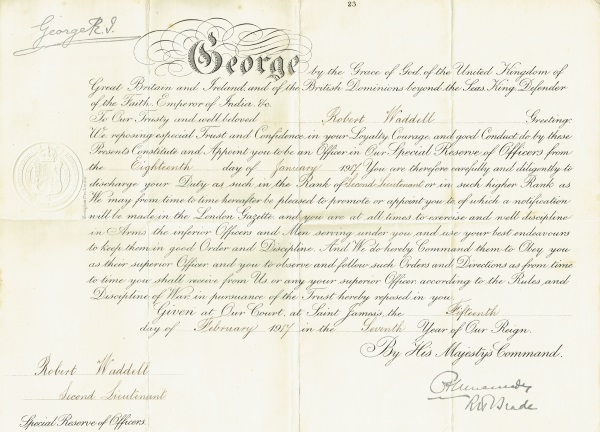 23
George R. I.
George by the Grace of God, of the United Kingdom of
Great Britain and Ireland, and of the British Dominions beyond the Seas, King, Defender
of the Faith, Emperor of India, &c.
To Our Trusty and well beloved Robert Waddell Greeting:
We reposing especial Trust and Confidence in your Loyalty, Courage, and good Conduct, do by these
Presents Constitute and Appoint you to be an Officer in Our Special Reserve of Officers from
the Eighteenth day of January 1917 You are therefore carefully and diligently to
discharge your Duty as such in the Rank of Second Lieutenant or in such higher Rank as
We may from time to time hereafter be pleased to promote or appoint you to, of which a notification
will be made in the London Gazette and you are at all times to exercise and well discipline
in Arms the inferior Officers and Men serving under you and use your best endeavours
to keep them in good Order and Discipline. And We do hereby Command them to Obey you
as their superior Officer and you to observe and follow such Orders and Directions as from time
to time you shall receive from Us or any your superior Officer, according to the Rules and
Discipline of War, in pursuance of the Trust hereby reposed in you.
Given at Our Court, at Saint James's, the Fifteenth
day of February 1917 in the Seventh Year of Our Reign.
By His Majesty's Command.
Robert Waddell
Second Lieutenant
Special Reserve of Officers
R H Brade